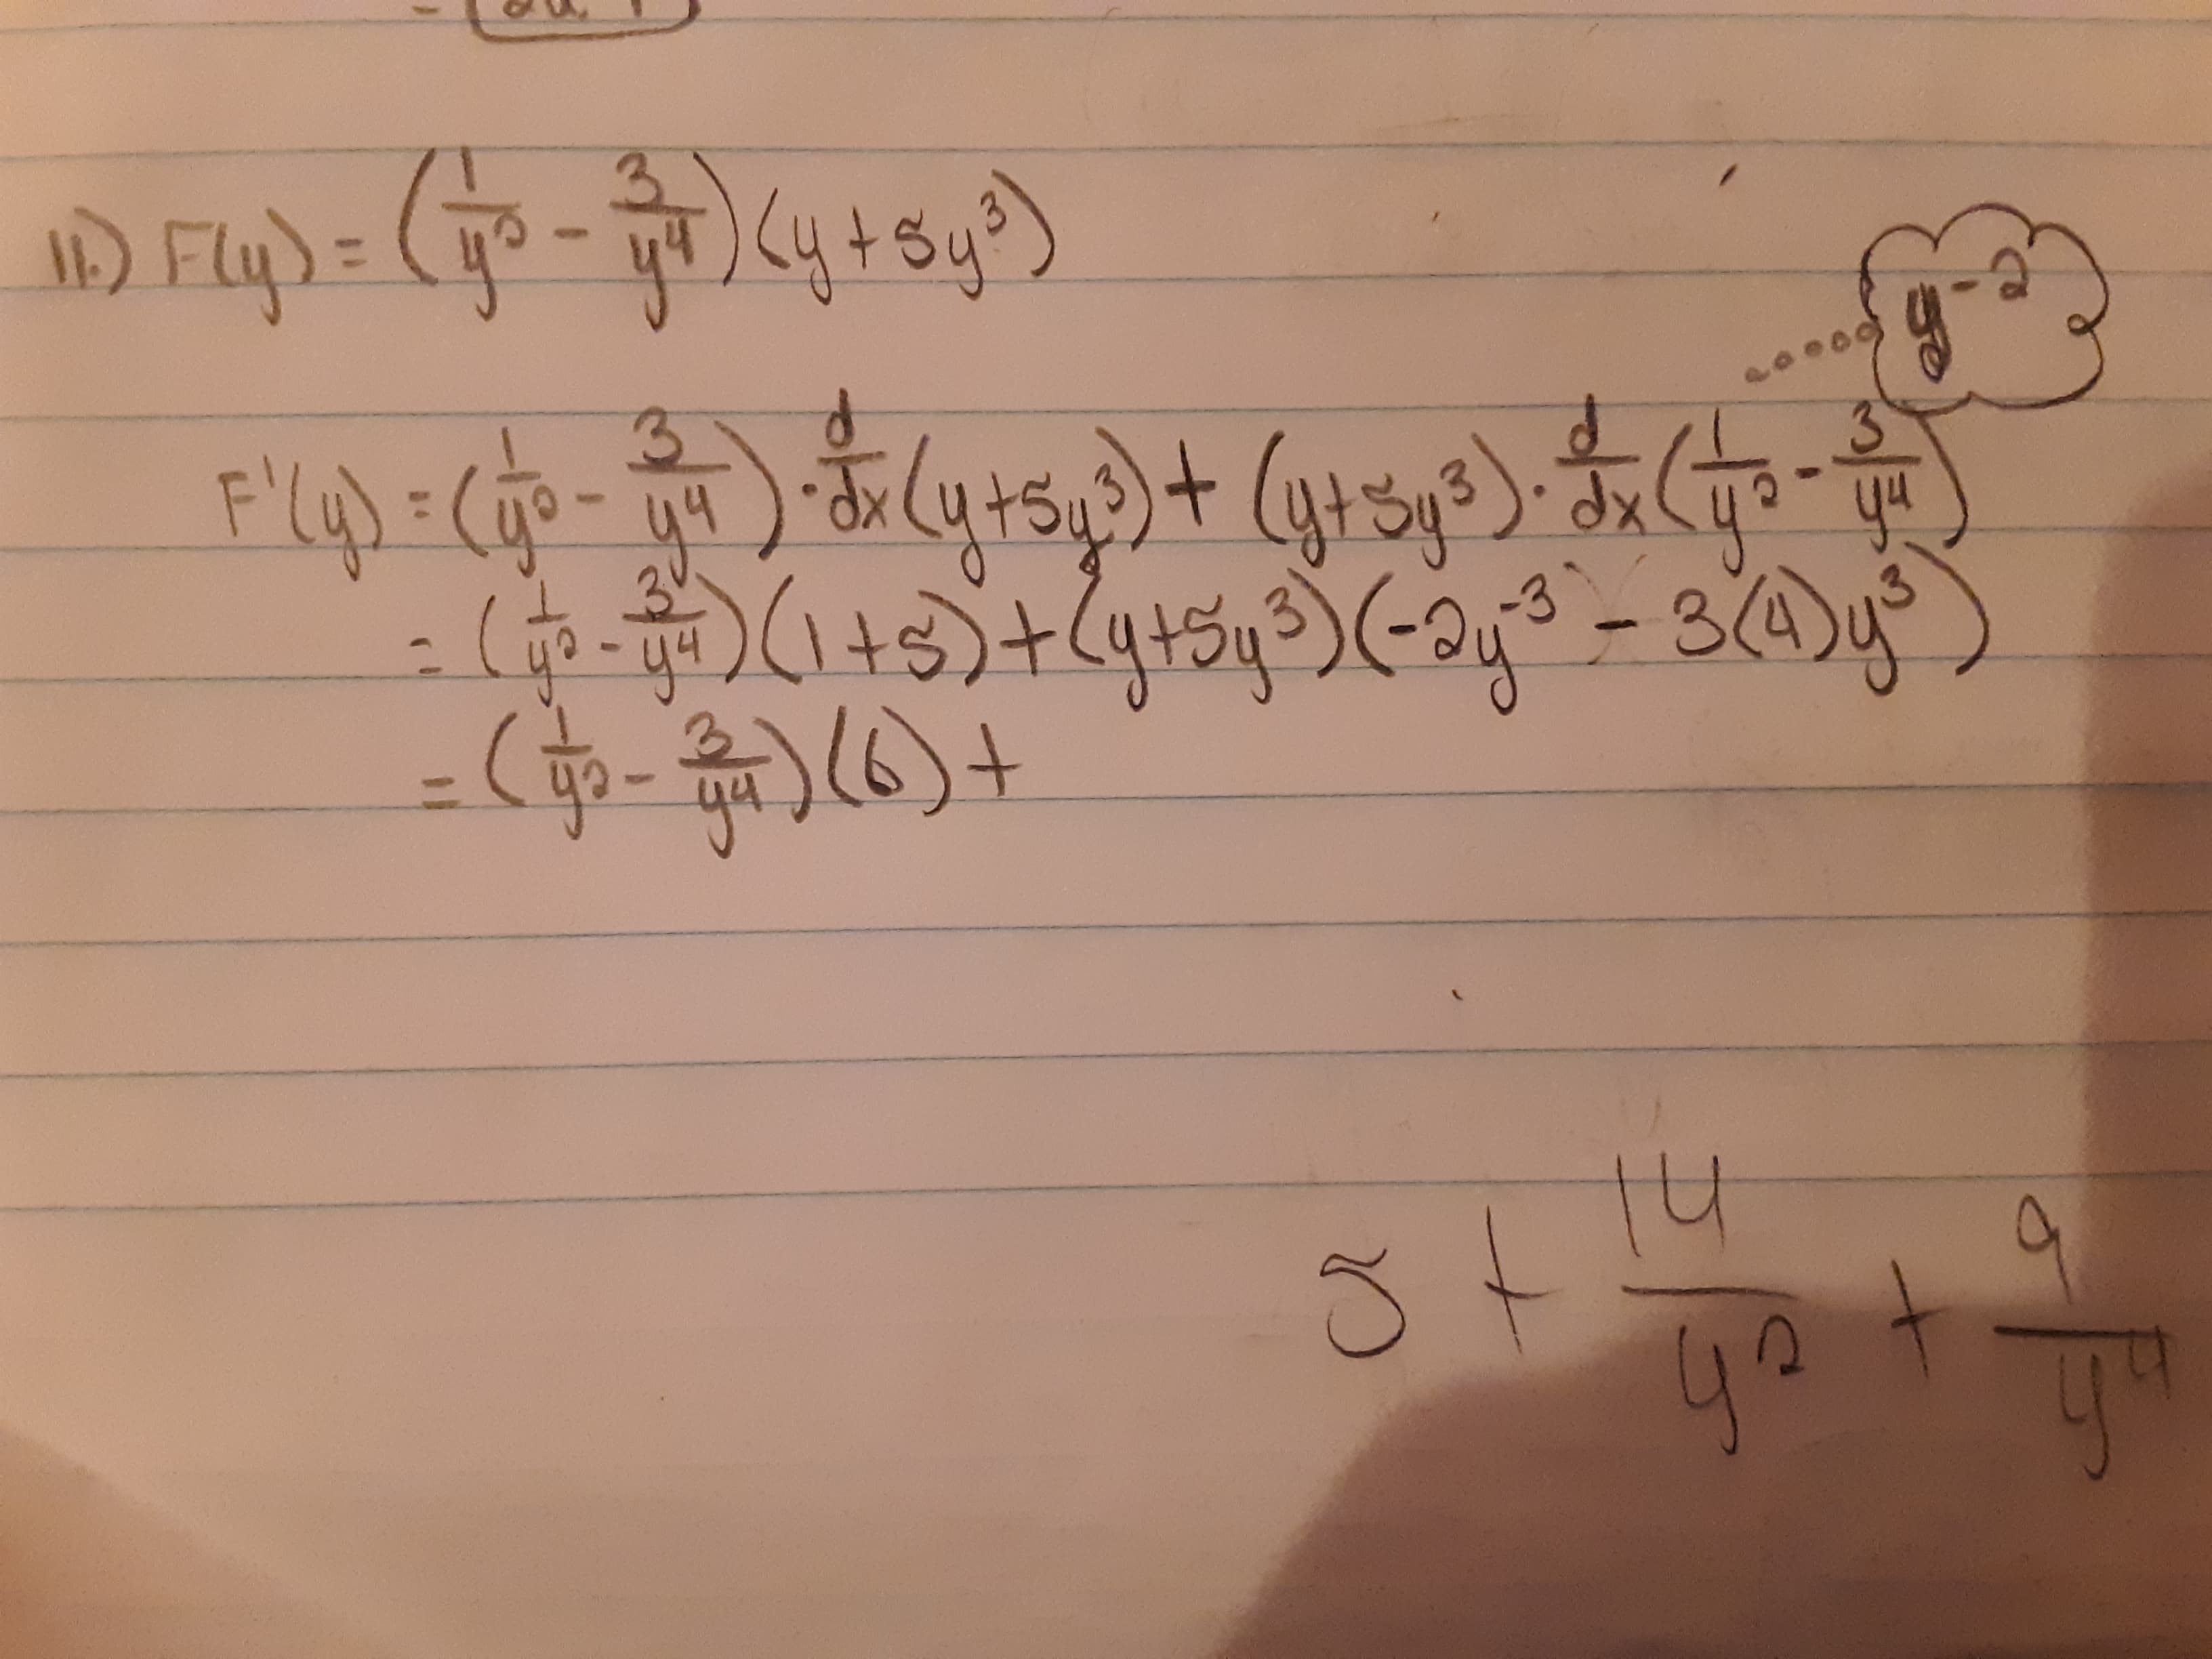 11.) F(y) = (1/y² - 3/y⁴)(y + 5y³)
y⁻²
F'(y) = (1/y² - 3/y⁴) · d/dx (y + 5y³) + (y + 5y³) · d/dx (1/y² - 3/y⁴)
= (1/y² - 3/y⁴)(1 + 5) + (y + 5y³)(-2y⁻³ - 3(4)y³)
= (1/y² - 3/y⁴)(6) +
5 + 14/y² + 9/y⁴